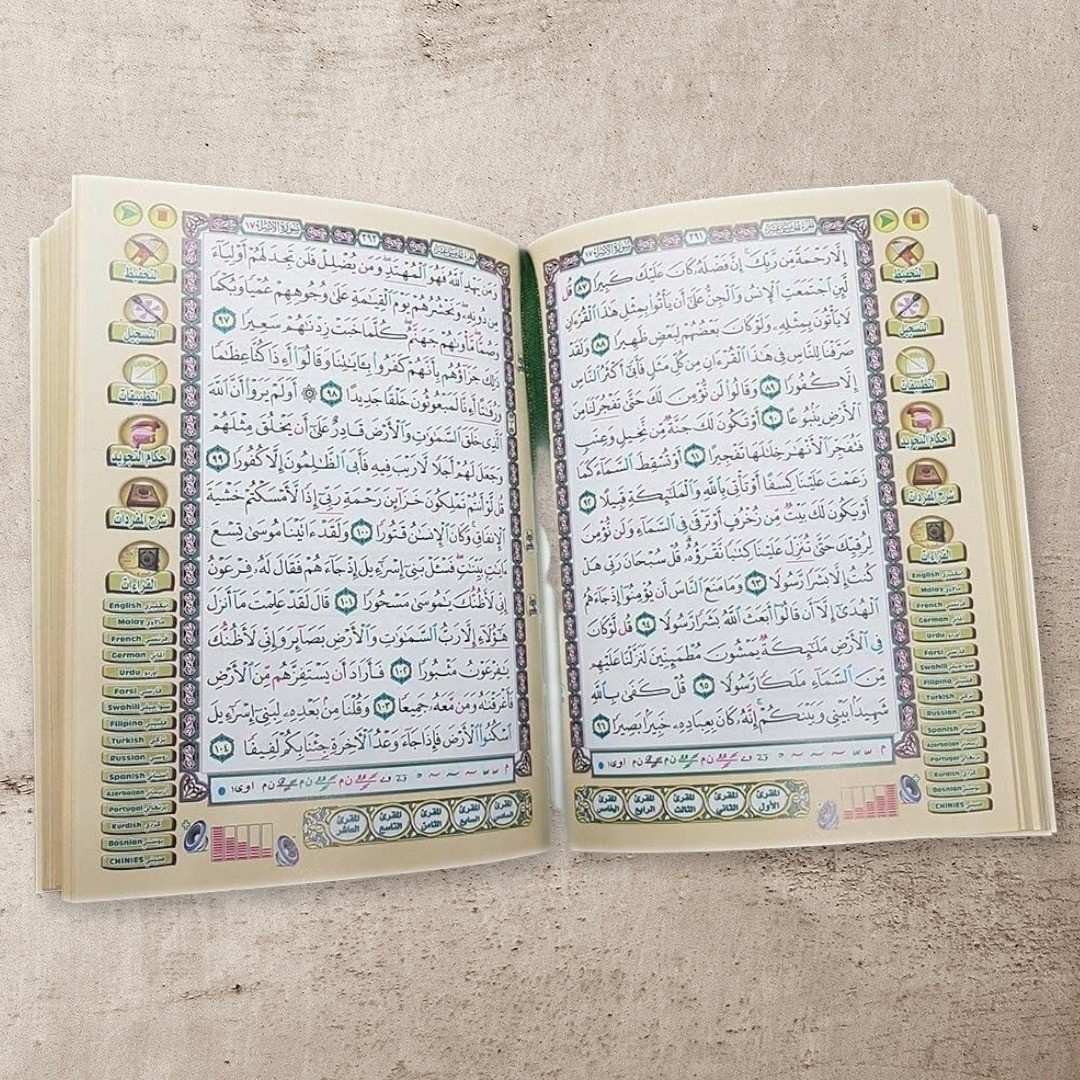 سورة الإسراء ١٧
٢٩١
الجزء الخامس عشر
إِلَّا رَحْمَةً مِّن رَّبِّكَ إِنَّ فَضْلَهُۥ كَانَ عَلَيْكَ كَبِيرًا ٨٧ قُل
لَّئِنِ ٱجْتَمَعَتِ ٱلْإِنسُ وَٱلْجِنُّ عَلَىٰٓ أَن يَأْتُوا۟ بِمِثْلِ هَٰذَا ٱلْقُرْءَانِ
لَا يَأْتُونَ بِمِثْلِهِۦ وَلَوْ كَانَ بَعْضُهُمْ لِبَعْضٍ ظَهِيرًا ٨٨ وَلَقَدْ
صَرَّفْنَا لِلنَّاسِ فِى هَٰذَا ٱلْقُرْءَانِ مِن كُلِّ مَثَلٍ فَأَبَىٰٓ أَكْثَرُ ٱلنَّاسِ
إِلَّا كُفُورًا ٨٩ وَقَالُوا۟ لَن نُّؤْمِنَ لَكَ حَتَّىٰ تَفْجُرَ لَنَا مِنَ
ٱلْأَرْضِ يَنۢبُوعًا ٩٠ أَوْ تَكُونَ لَكَ جَنَّةٌ مِّن نَّخِيلٍ وَعِنَبٍ
فَتُفَجِّرَ ٱلْأَنْهَٰرَ خِلَٰلَهَا تَفْجِيرًا ٩١ أَوْ تُسْقِطَ ٱلسَّمَآءَ كَمَا
زَعَمْتَ عَلَيْنَا كِسَفًا أَوْ تَأْتِىَ بِٱللَّهِ وَٱلْمَلَٰٓئِكَةِ قَبِيلًا ٩٢
أَوْ يَكُونَ لَكَ بَيْتٌ مِّن زُخْرُفٍ أَوْ تَرْقَىٰ فِى ٱلسَّمَآءِ وَلَن نُّؤْمِنَ
لِرُقِيِّكَ حَتَّىٰ تُنَزِّلَ عَلَيْنَا كِتَٰبًا نَّقْرَؤُهُۥ قُلْ سُبْحَانَ رَبِّى هَلْ
كُنتُ إِلَّا بَشَرًا رَّسُولًا ٩٣ وَمَا مَنَعَ ٱلنَّاسَ أَن يُؤْمِنُوٓا۟ إِذْ جَآءَهُمُ
ٱلْهُدَىٰٓ إِلَّآ أَن قَالُوٓا۟ أَبَعَثَ ٱللَّهُ بَشَرًا رَّسُولًا ٩٤ قُل لَّوْ كَانَ
فِى ٱلْأَرْضِ مَلَٰٓئِكَةٌ يَمْشُونَ مُطْمَئِنِّينَ لَنَزَّلْنَا عَلَيْهِم
مِّنَ ٱلسَّمَآءِ مَلَكًا رَّسُولًا ٩٥ قُلْ كَفَىٰ بِٱللَّهِ
شَهِيدًۢا بَيْنِى وَبَيْنَكُمْ إِنَّهُۥ كَانَ بِعِبَادِهِۦ خَبِيرًۢا بَصِيرًا ٩٦
التحفيظ
التسجيل
التطبيقات
أحكام التجويد
شرح المفردات
القراءات
English إنجليزي
Malay مالاوي
French فرنسي
German ألماني
Urdu أوردو
Farsi فارسي
Swahili سواحيلي
Filipino فلبيني
Turkish تركي
Russian روسي
Spanish إسباني
Azerbaijan
Portugal برتغالي
Kurdish كردي
Bosnian بوسني
CHINIES صيني
المقرئ الأول
المقرئ الثاني
المقرئ الثالث
المقرئ الرابع
المقرئ الخامس
سورة الإسراء ١٧
٢٩٢
الجزء الخامس عشر
وَمَن يَهْدِ ٱللَّهُ فَهُوَ ٱلْمُهْتَدِ وَمَن يُضْلِلْ فَلَن تَجِدَ لَهُمْ أَوْلِيَآءَ
مِن دُونِهِۦ وَنَحْشُرُهُمْ يَوْمَ ٱلْقِيَٰمَةِ عَلَىٰ وُجُوهِهِمْ عُمْيًا وَبُكْمًا
وَصُمًّا مَّأْوَىٰهُمْ جَهَنَّمُ كُلَّمَا خَبَتْ زِدْنَٰهُمْ سَعِيرًا ٩٧
ذَٰلِكَ جَزَآؤُهُم بِأَنَّهُمْ كَفَرُوا۟ بِـَٔايَٰتِنَا وَقَالُوٓا۟ أَءِذَا كُنَّا عِظَٰمًا
وَرُفَٰتًا أَءِنَّا لَمَبْعُوثُونَ خَلْقًا جَدِيدًا ٩٨ ۞ أَوَلَمْ يَرَوْا۟ أَنَّ ٱللَّهَ
ٱلَّذِى خَلَقَ ٱلسَّمَٰوَٰتِ وَٱلْأَرْضَ قَادِرٌ عَلَىٰٓ أَن يَخْلُقَ مِثْلَهُمْ
وَجَعَلَ لَهُمْ أَجَلًا لَّا رَيْبَ فِيهِ فَأَبَى ٱلظَّٰلِمُونَ إِلَّا كُفُورًا ٩٩
قُل لَّوْ أَنتُمْ تَمْلِكُونَ خَزَآئِنَ رَحْمَةِ رَبِّىٓ إِذًا لَّأَمْسَكْتُمْ خَشْيَةَ
ٱلْإِنفَاقِ وَكَانَ ٱلْإِنسَٰنُ قَتُورًا ١٠٠ وَلَقَدْ ءَاتَيْنَا مُوسَىٰ تِسْعَ
ءَايَٰتٍۭ بَيِّنَٰتٍ فَسْـَٔلْ بَنِىٓ إِسْرَٰٓءِيلَ إِذْ جَآءَهُمْ فَقَالَ لَهُۥ فِرْعَوْنُ
إِنِّى لَأَظُنُّكَ يَٰمُوسَىٰ مَسْحُورًا ١٠١ قَالَ لَقَدْ عَلِمْتَ مَآ أَنزَلَ
هَٰٓؤُلَآءِ إِلَّا رَبُّ ٱلسَّمَٰوَٰتِ وَٱلْأَرْضِ بَصَآئِرَ وَإِنِّى لَأَظُنُّكَ
يَٰفِرْعَوْنُ مَثْبُورًا ١٠٢ فَأَرَادَ أَن يَسْتَفِزَّهُم مِّنَ ٱلْأَرْضِ
فَأَغْرَقْنَٰهُ وَمَن مَّعَهُۥ جَمِيعًا ١٠٣ وَقُلْنَا مِنۢ بَعْدِهِۦ لِبَنِىٓ إِسْرَٰٓءِيلَ
ٱسْكُنُوا۟ ٱلْأَرْضَ فَإِذَا جَآءَ وَعْدُ ٱلْءَاخِرَةِ جِئْنَا بِكُمْ لَفِيفًا ١٠٤
التحفيظ
التسجيل
التطبيقات
أحكام التجويد
شرح المفردات
القراءات
English إنجليزي
Malay مالاوي
French فرنسي
German ألماني
Urdu أوردو
Farsi فارسي
Swahili سواحيلي
Filipino فلبيني
Turkish تركي
Russian روسي
Spanish إسباني
Azerbaijan
Portugal برتغالي
Kurdish كردي
Bosnian بوسني
CHINIES صيني
المقرئ السادس
المقرئ السابع
المقرئ الثامن
المقرئ التاسع
المقرئ العاشر